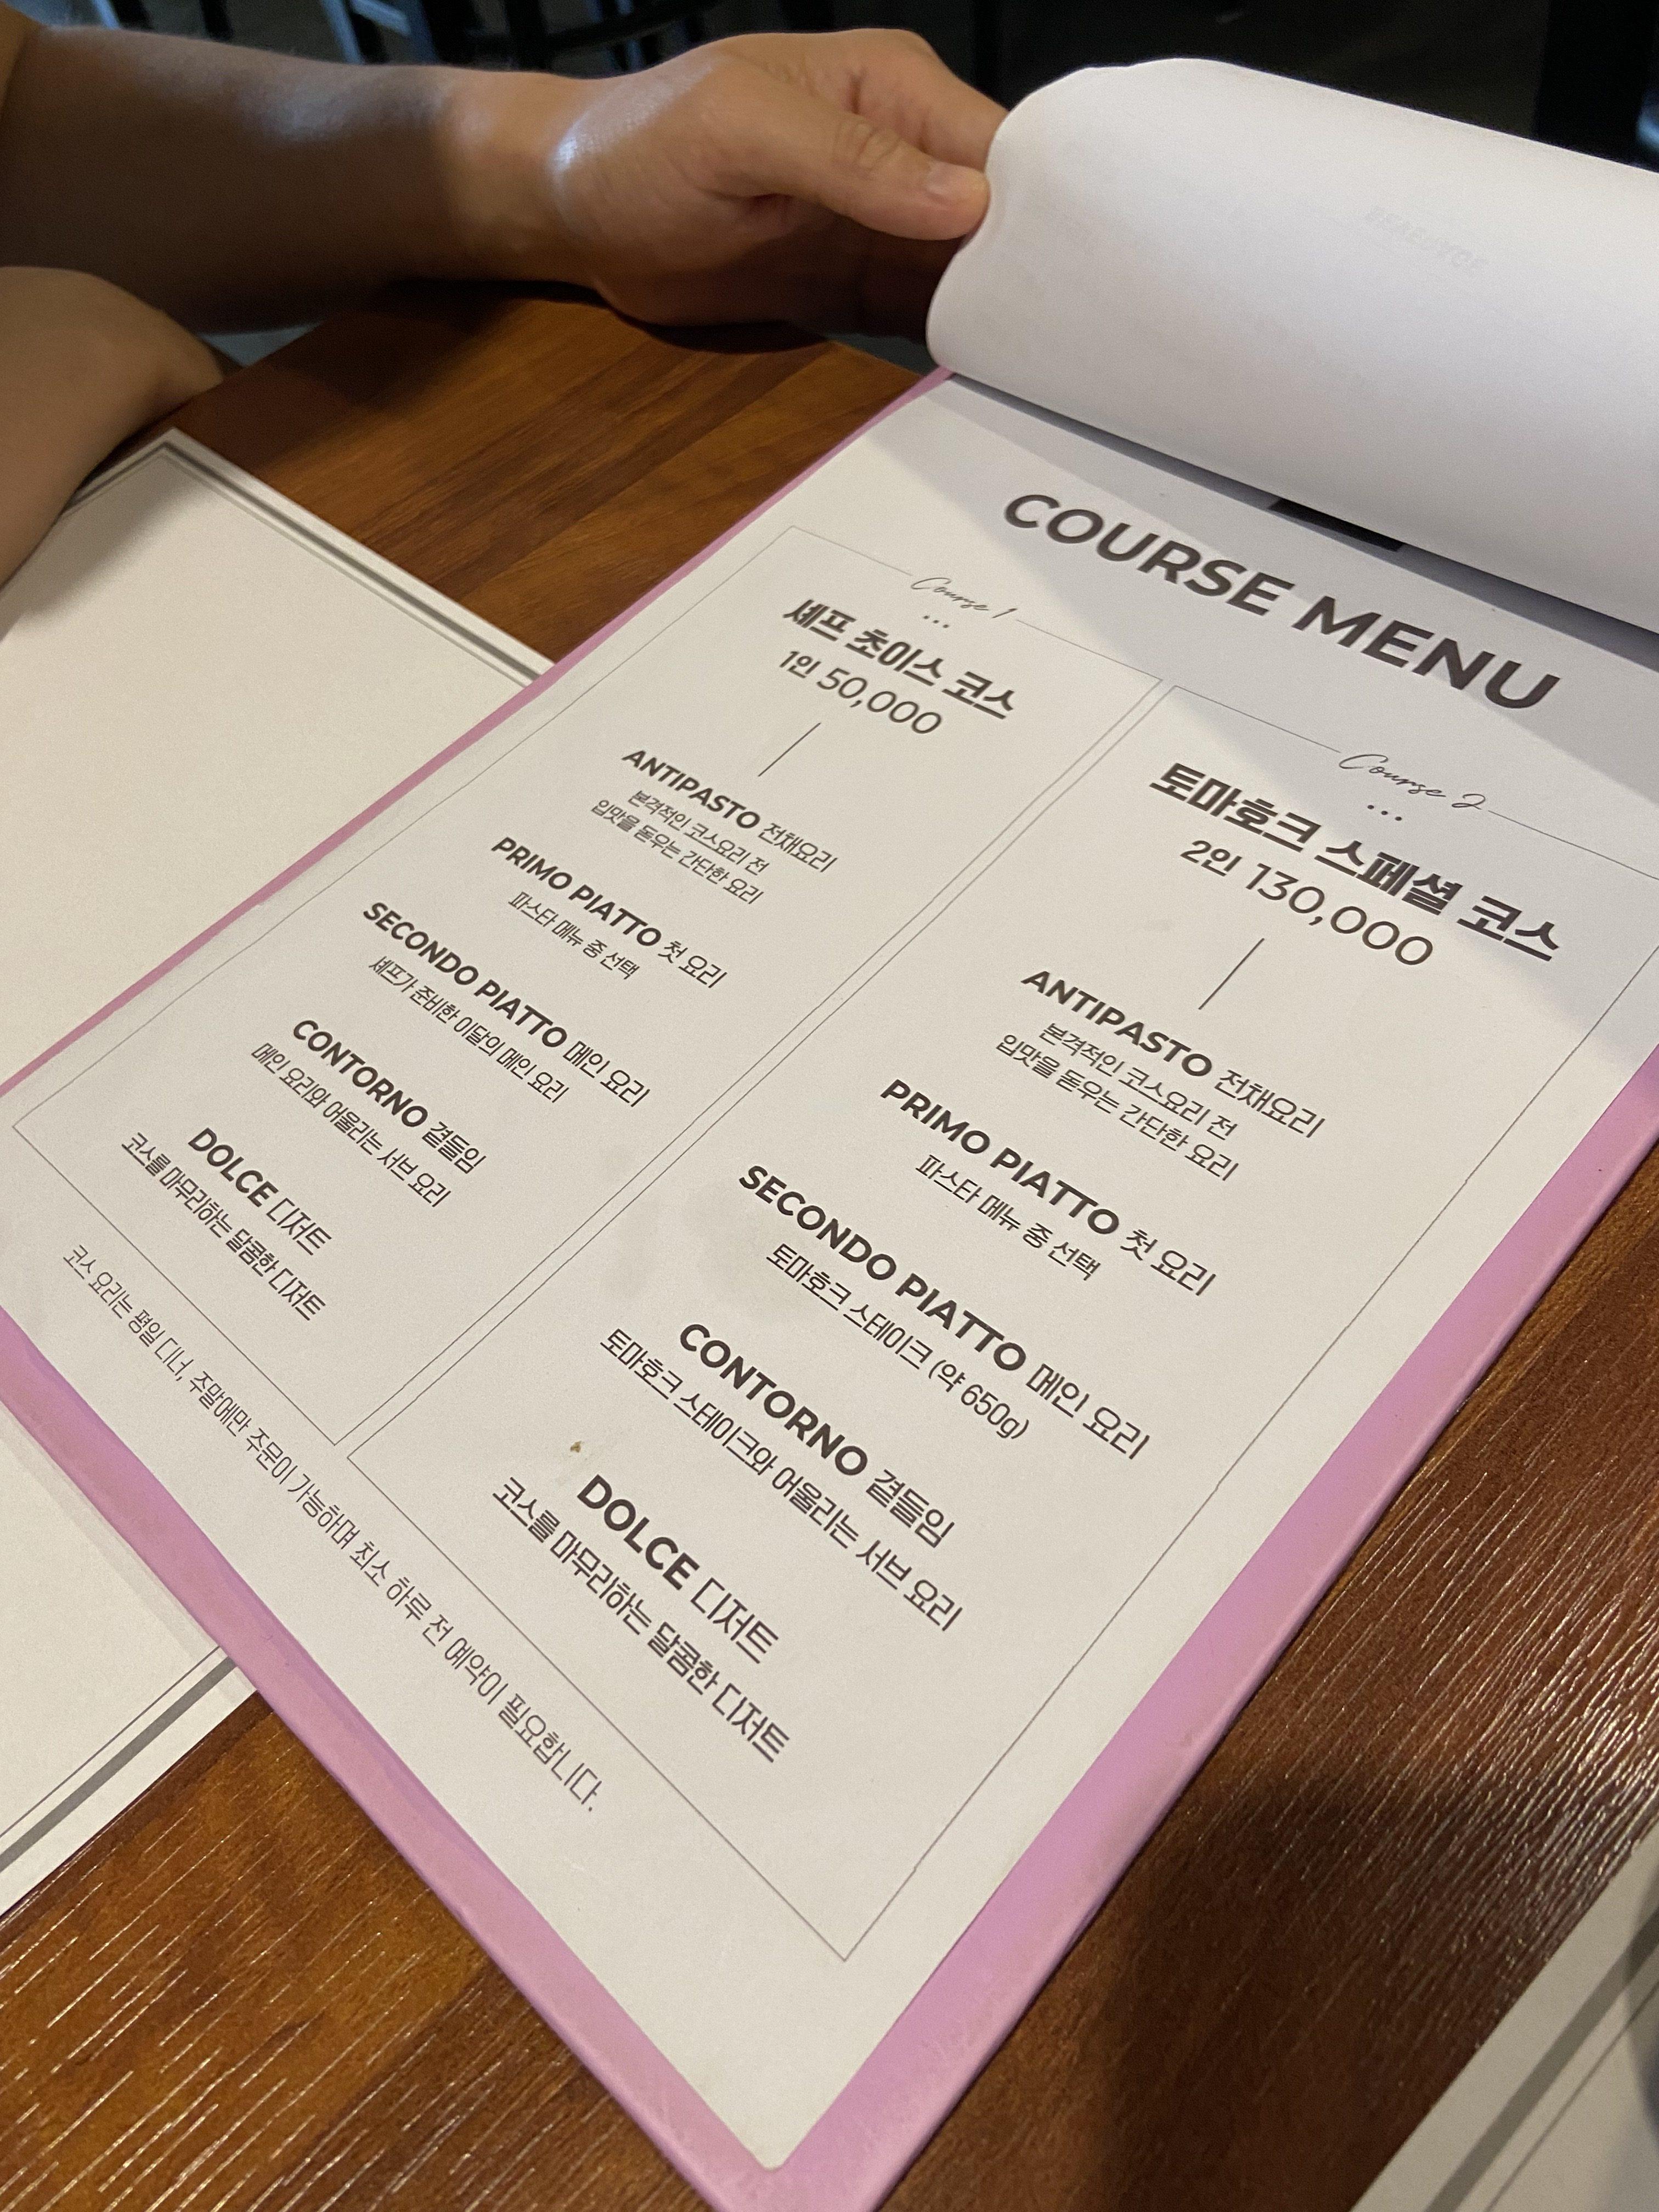 COURSE MENU
Course 1
셰프 초이스 코스
1인 50,000
ANTIPASTO 전채요리
본격적인 코스요리 전
입맛을 돋우는 간단한 요리
PRIMO PIATTO 첫 요리
파스타 메뉴 중 선택
SECONDO PIATTO 메인 요리
셰프가 준비한 이달의 메인 요리
CONTORNO 곁들임
메인 요리와 어울리는 서브 요리
DOLCE 디저트
코스를 마무리하는 달콤한 디저트
Course 2
토마호크 스페셜 코스
2인 130,000
ANTIPASTO 전채요리
본격적인 코스요리 전
입맛을 돋우는 간단한 요리
PRIMO PIATTO 첫 요리
파스타 메뉴 중 선택
SECONDO PIATTO 메인 요리
토마호크 스테이크 (약 650g)
CONTORNO 곁들임
토마호크 스테이크와 어울리는 서브 요리
DOLCE 디저트
코스를 마무리하는 달콤한 디저트
코스 요리는 평일 디너, 주말에만 주문이 가능하며 최소 하루 전 예약이 필요합니다.